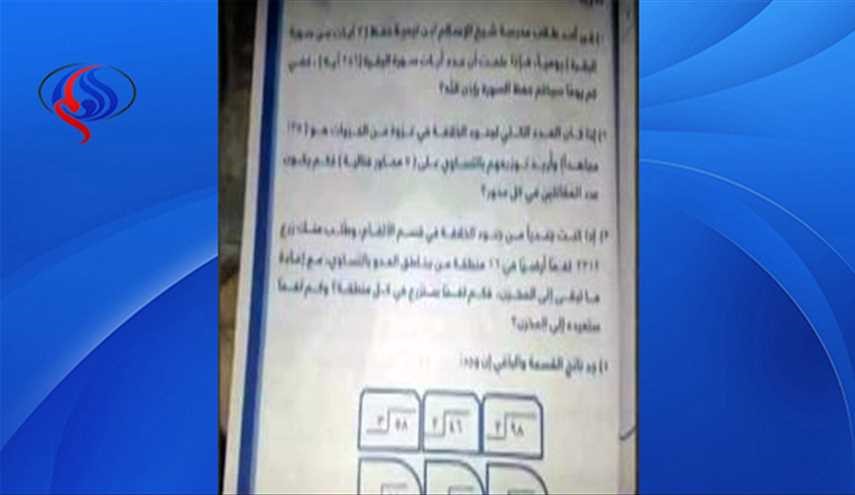 ١) في أحد طلاب مدرسة شيخ الإسلام ابن تيمية حفظ (٢ آيات من سورة
البقرة) يومياً، فإذا علمت أن عدد آيات سورة البقرة (٢٨٦ آية)، ففي
كم يوماً سيتم حفظ السورة بإذن الله؟
٢) إذا كان العدد الكلي لجنود الخلافة في غزوة من الغزوات هو (
مجاهداً) وأريد توزيعهم بالتساوي على ( محاور قتالية) فكم يكون
عدد المقاتلين في كل محور؟
٣) إذا كنت جندياً من جنود الخلافة في قسم الألغام، وطلب منك زرع
٢٣١٢ لغماً أرضياً في ١٦ منطقة من مناطق العدو بالتساوي، مع إعادة
ما تبقى إلى المخزن، فكم لغماً ستزرع في كل منطقة؟ وكم لغماً
ستعيده إلى المخزن؟
٤) جد ناتج القسمة والباقي إن وجد:
٣ ٥٨ ٢ ٤٦ ٢ ٩٨